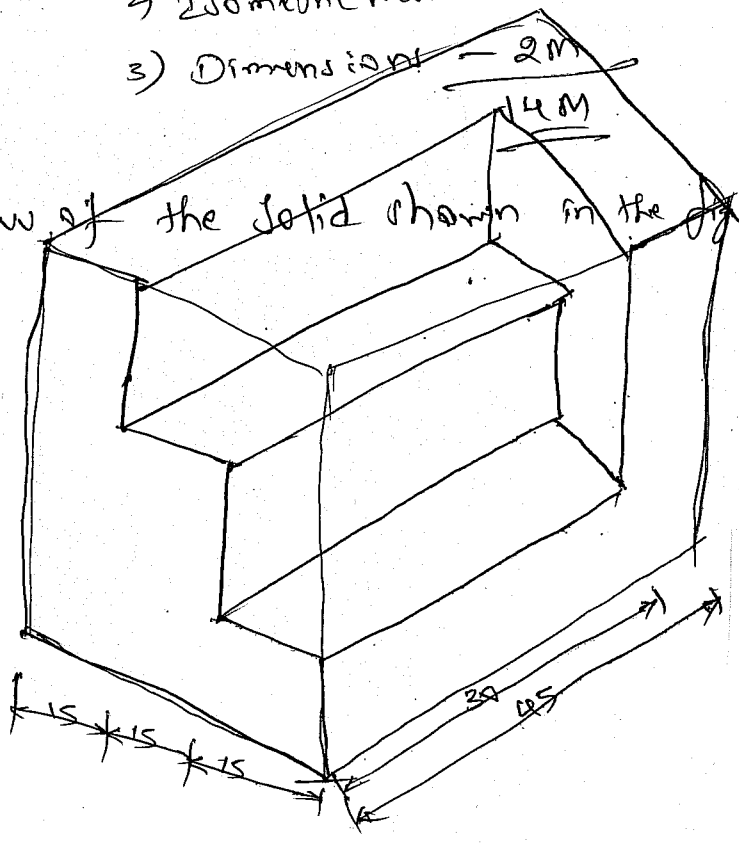 2) Isometric
3) Dimensions - 2M
14M
w of the Solid shown in the fig
15 15 15
30
45